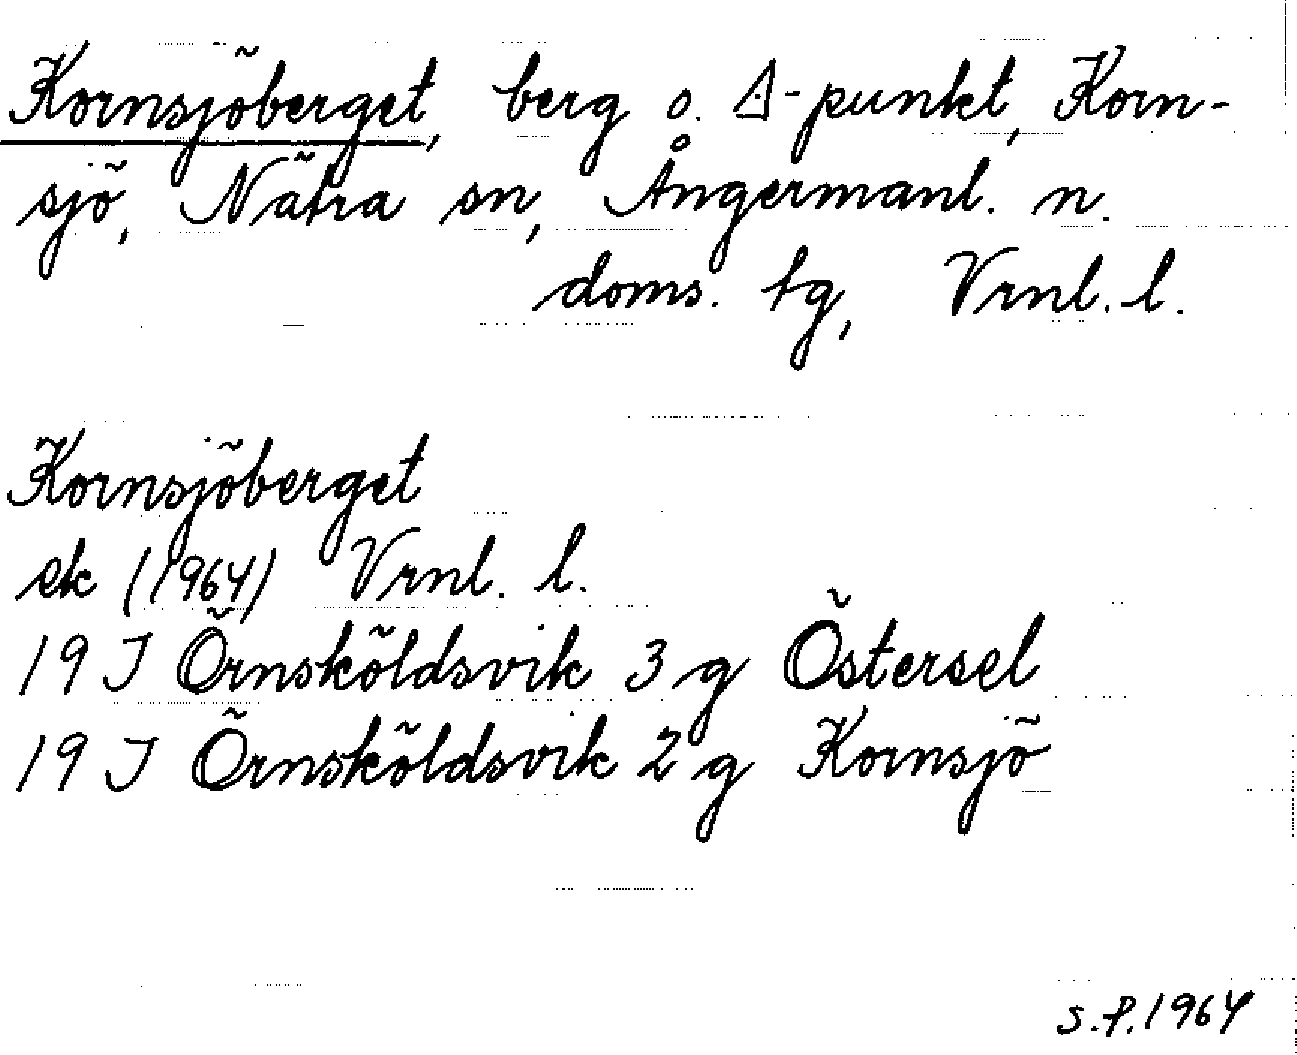 Kornsjöberget, berg o. △-punkt, Korn-
sjö, Nätra sn, Ångermanl. n.
doms. tg, Vrnl. l.
Kornsjöberget
ek (1964) Vrnl. l.
19 J Örnsköldsvik 3 g Östersel
19 J Örnsköldsvik 2 g Kornsjö
S.P. 1964